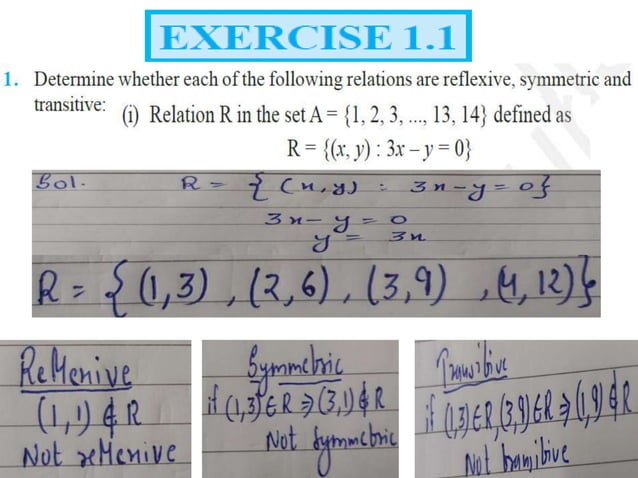 EXERCISE 1.1
1. Determine whether each of the following relations are reflexive, symmetric and
transitive:
(i) Relation R in the set A = {1, 2, 3, ..., 13, 14} defined as
R = {(x, y) : 3x – y = 0}
Sol. R = { (x,y) : 3x-y=0}
3x-y=0
y = 3x
R = {(1,3), (2,6), (3,9), (4,12)}
Reflexive
(1,1) ∉ R
Not reflexive
Symmetric
if (1,3) ∈ R ⇒ (3,1) ∉ R
Not Symmetric
Transitive
if (1,3) ∈ R, (3,9) ∈ R ⇒ (1,9) ∉ R
Not transitive